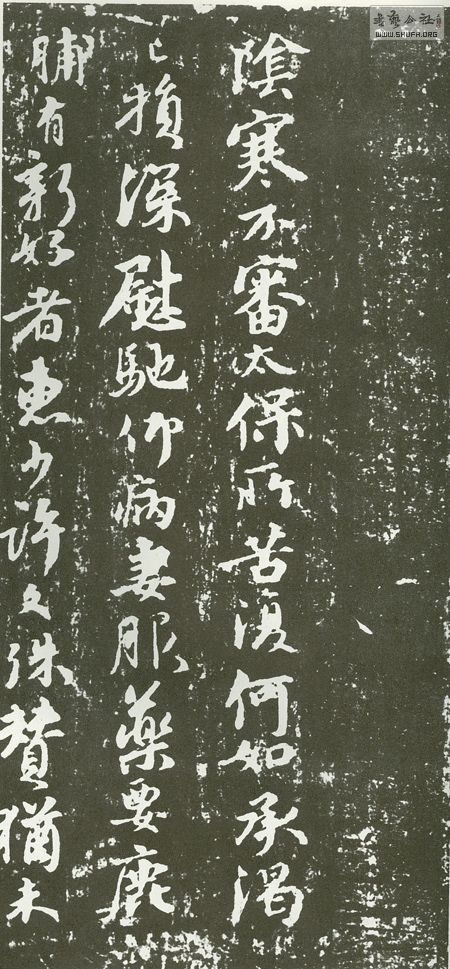 書藝公社
WWW.SHUFA.ORG
陰寒不審太保所苦復何如承渴
已損深慰馳仰病妻服藥要鹿
脯有新好者惠少許久病殊替猶未